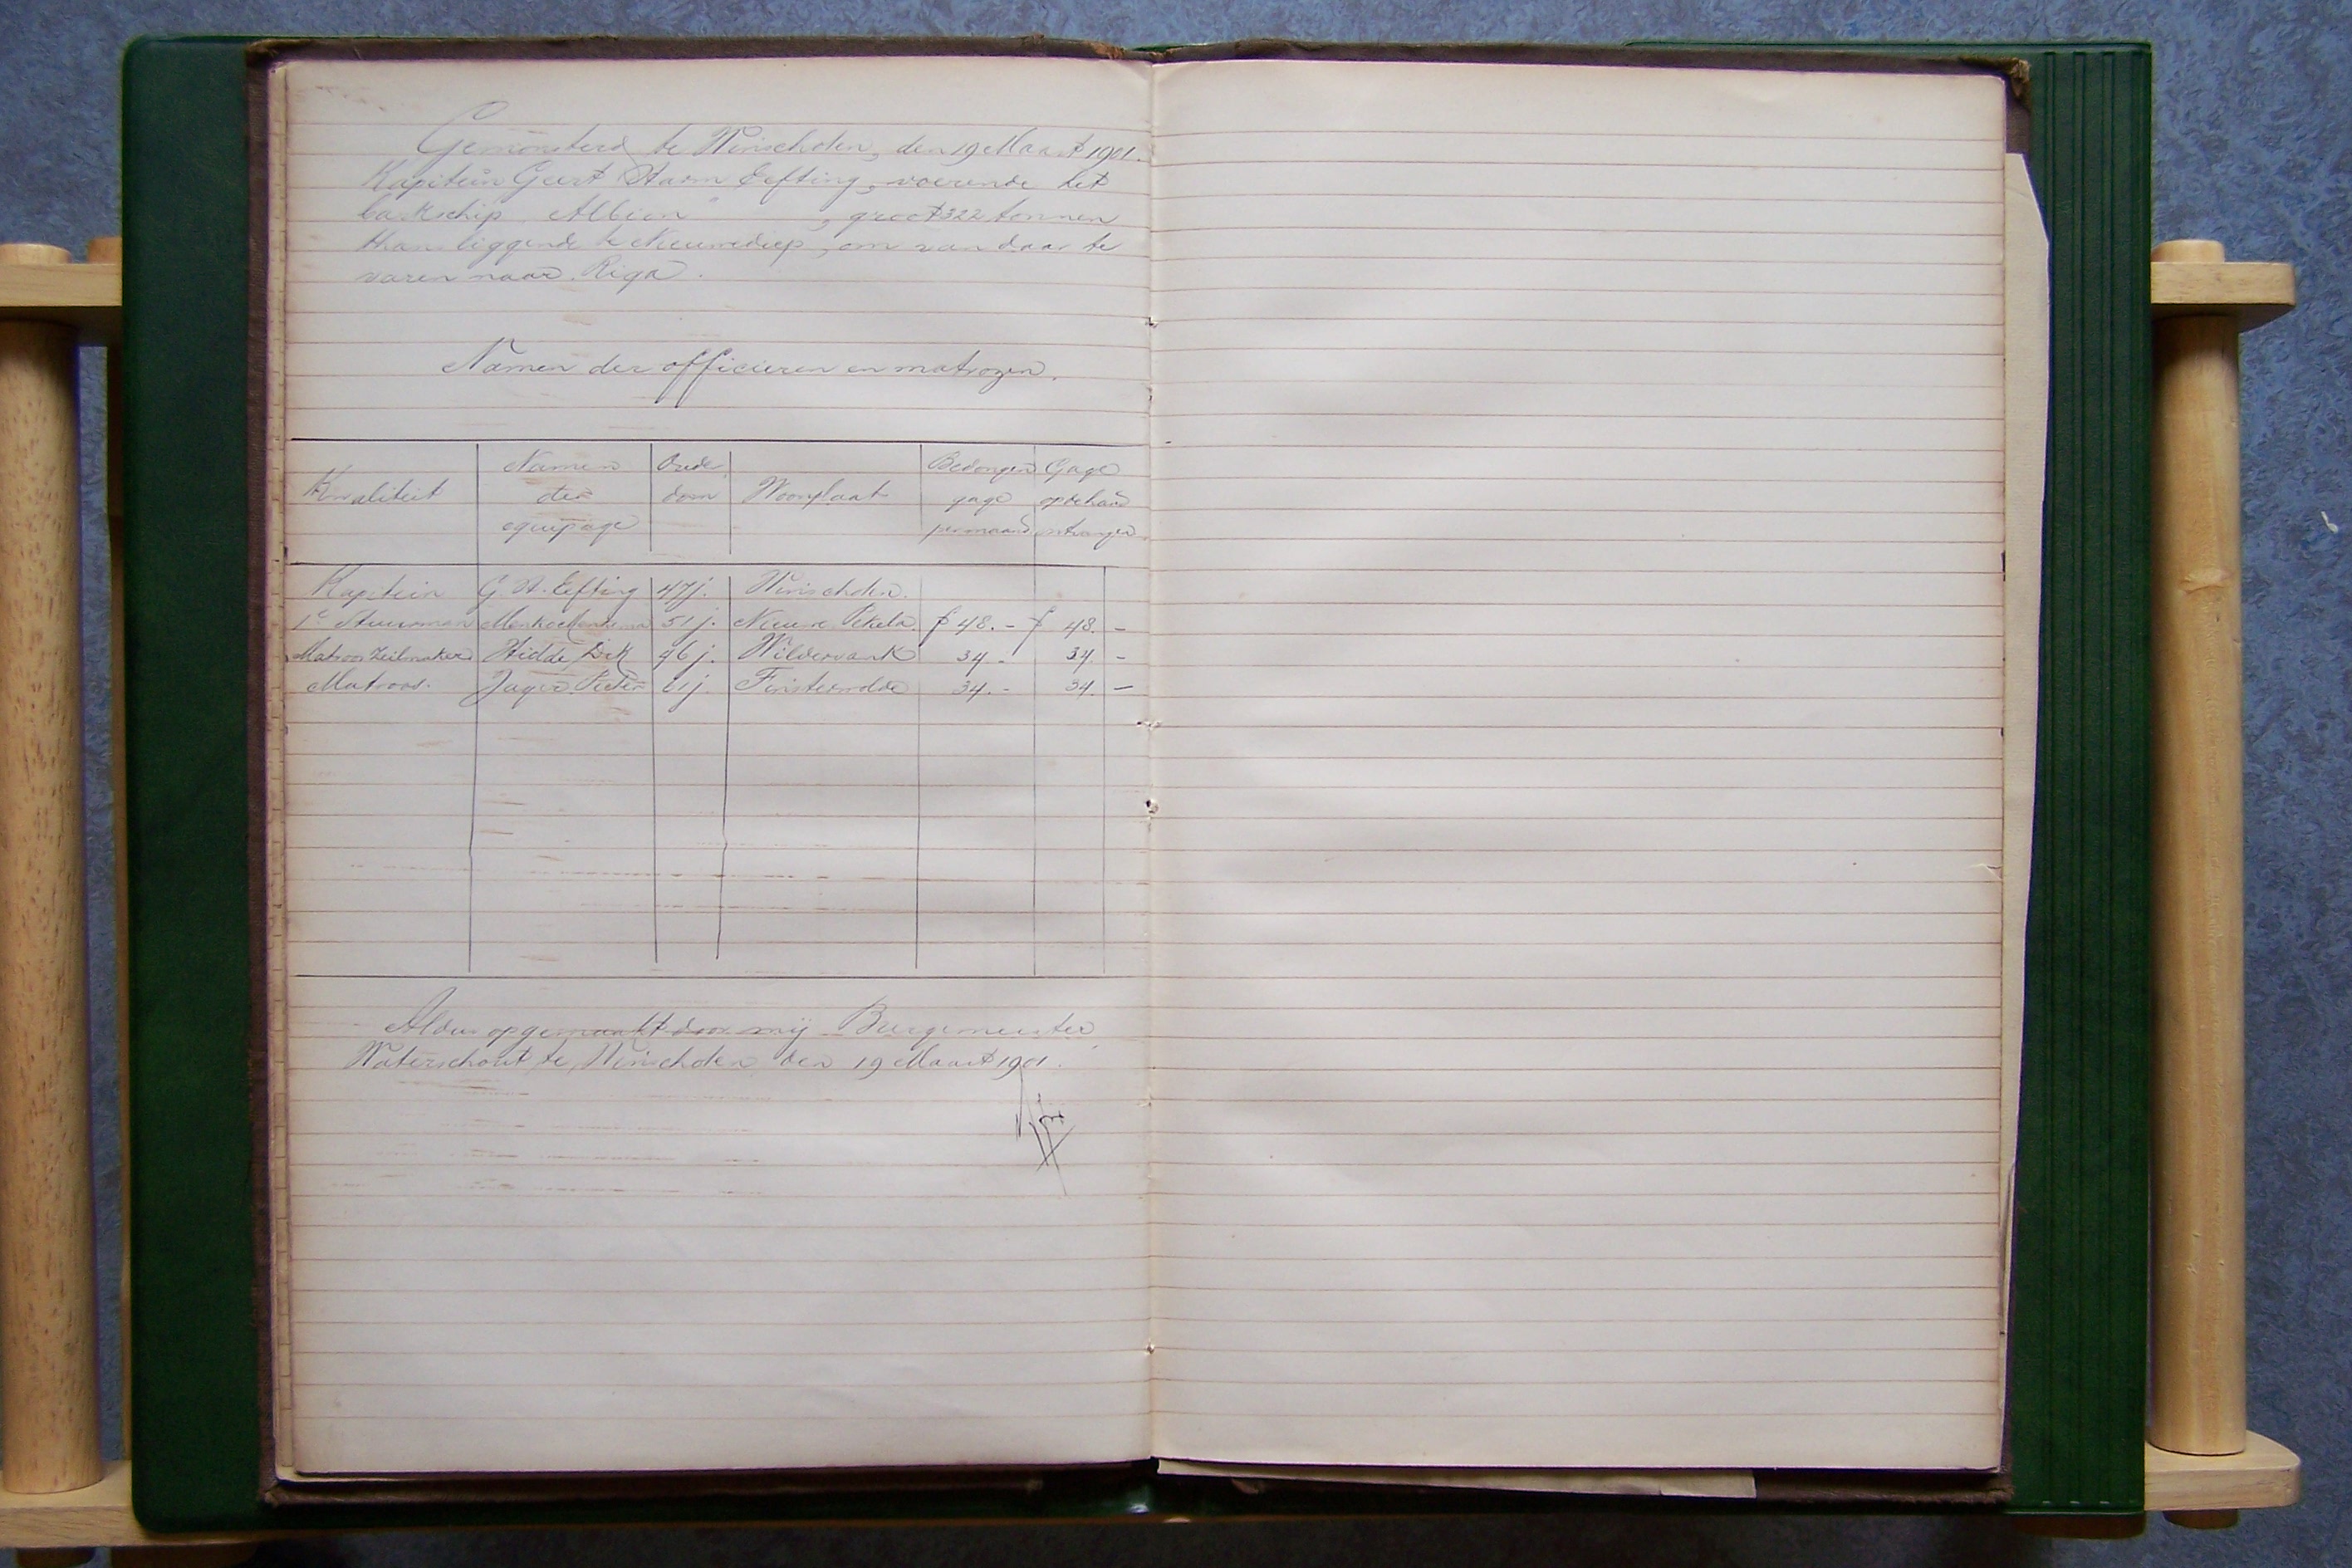 Gemonsterd te Winschoten, den 19 Maart 1901.
Kapitein Geert Harm Eefting, voerende het
barkschip "Albion", groot 322 tonnen
thans liggende te Nieuwediep, om van daar te
varen naar Riga.
Namen der officieren en matrozen.
Kwaliteit Namen der equipage Ouderdom Woonplaats Bedongen gage per maand Gage op de hand ontvangen
Kapitein G. H. Eefting 47 j. Winschoten.
1e Stuurman Menko 51 j. Nieuwe Pekela f 48.- f 48.-
Matroos Zeilmaker Hidde Dik 46 j. Wildervank 34.- 34.-
Matroos. Jager Pieter 61 j. Finsterwolde 34.- 34.-
Aldus opgemaakt door mij Burgemeester
Waterschout te Winschoten den 19 Maart 1901.